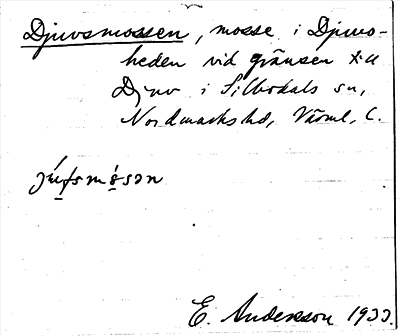 Djuvsmossen, mosse i Djuvs-
heden vid gränsen till
Djuv i Silbodals sn,
Nordmarks hd, Värml. l.
E. Anderson 1933.